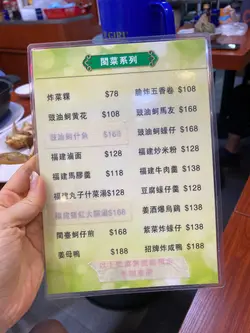 閩菜系列
炸菜粿 $78
豉油蚵黄花 $108
豉油蚵什魚 $168
福建滷面 $128
福建馬膠羹 $118
福建丸子什菜湯 $128
$168
閩臺蚵仔煎 $168
姜母鴨 $188
脆炸五香卷 $108
豉油蚵馬友 $168
豉油蚵蟶仔 $168
福建炒米粉 $128
福建牛肉羹 $138
豆腐蟶仔羹 $128
姜酒爆烏鷄 $138
紫菜炸蟶仔 $138
招牌炸咸鴨 $188